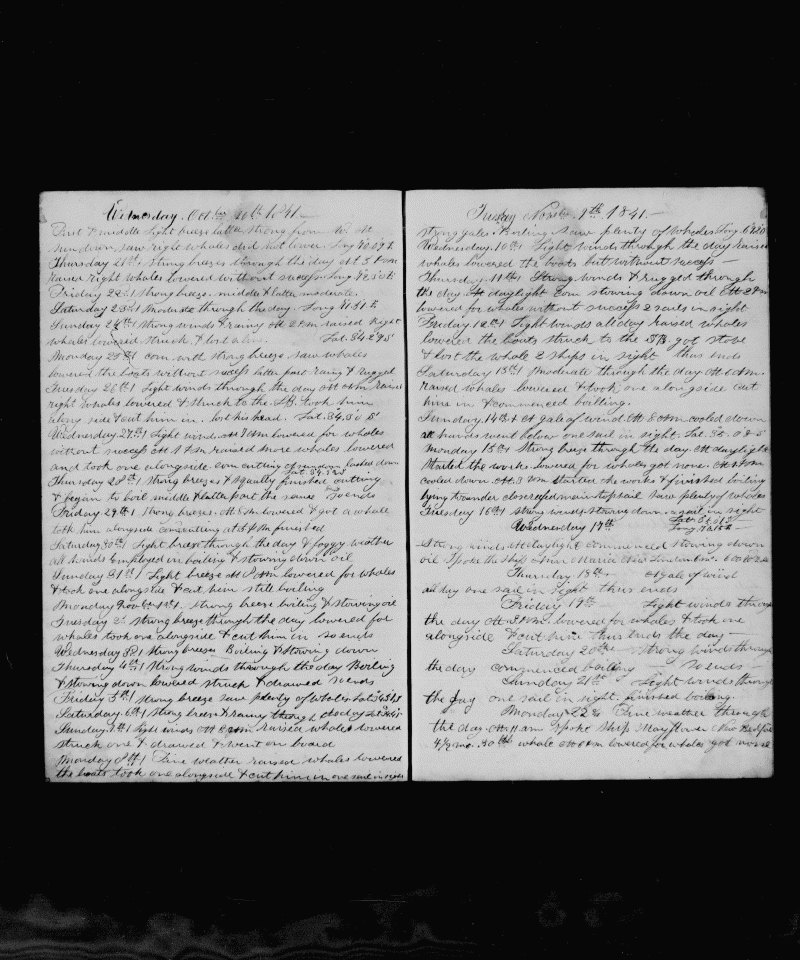 Wednesday. Oct 20th 1841.
First & middle light breeze latter strong from N. At
sun down saw right whales did not lower. Long
Thursday 21st Strong breezes through the day At 5 AM
raised right whales lowered without success Long
Friday 22 Strong breeze middle & latter moderate
Saturday 23 Moderate through the day. Long 71.51 E
Sunday 24 Strong winds & rainy At 2 PM raised right
whales lowered struck & lost Lat. 34.29 S
Monday 25 com. with strong breeze saw whales
lowered the boats without success latter part rainy & rugged
Tuesday 26 Light winds through the day At AM raised
right whales lowered & struck to the LB. took him
along side & cut him in. lost his head. Lat. 34.50 S
Wednesday 27 Light wind At 7 AM lowered for whales
without success At 11 AM raised more whales lowered
and took one alongside com cutting at sundown lashed down
Lat. 34.52 S
Thursday 28 Strong breezes & squally finished cutting
& began to boil middle & latter part the same So ends
Friday 29 Strong breezes At 8 AM lowered & got a whale
took him alongside com cutting at 3 PM finished
Saturday 30 Light breeze through the day & foggy weather
all hands employed in boiling & stowing down oil
Sunday 31 Light breeze At 8 AM lowered for whales
& took one alongside & cut him still boiling
Monday Nov 1st Strong breeze boiling & stowing oil
Tuesday 2 strong breeze through the day lowered for
whales took one alongside & cut him in so ends
Wednesday 3 Strong breezes Boiling & stowing down
Thursday 4th Strong winds through the day Boiling
& stowing down lowered struck & drawed So ends
Friday 5th strong breeze saw plenty of whales Lat
Saturday 6th Strong breeze & rainy through the day Lat
Sunday 7th Light winds At 8 AM raised whales lowered
struck one & drawed & went on board
Monday 8th Fine weather raised whales lowered
the boats took one alongside & cut him in one sail in sight
Tuesday Nov 9th 1841.
strong gales. Boiling saw plenty of whales Long.
Wednesday. 10th Light winds through the day raised
whales lowered the boats but without success
Thursday 11th Strong winds & rugged through
the day At daylight com stowing down oil At 2 PM
lowered for whales without success 2 sails in sight
Friday 12th Light winds all day raised whales
lowered the boats struck to the SB. got stove
& lost the whale 2 ships in sight thus ends
Saturday 13th Moderate through the day At 6 AM.
raised whales lowered & took one alongside cut
him in & commenced boiling.
Sunday, 14th A gale of wind At 8 AM cooled down
all hands went below one sail in sight. Lat. 35. 0 S
Monday 15th Strong breeze through the day At daylight
started the works. lowered for whales got none. At AM
cooled down. At 3 PM started the works & finished boiling
lying to under close reefed main topsail saw plenty of whales
Tuesday 16th strong winds stowing down a sail in sight
Lat.
Long
Wednesday 17th
Strong winds At daylight commenced stowing down
oil Spoke the ship Ann Maria New London.
Thursday 18th A gale of wind
all day one sail in sight thus ends
Friday 19th Light winds through
the day At 3 PM. lowered for whales & took one
alongside & cut him thus ends the day
Saturday 20th Strong wind through
the day commenced boiling So ends
Sunday 21st Light winds through
the day one sail in sight. finished boiling.
Monday 22 Fine weather through
the day At 11 am spoke ship Mayflower New Bedford
whale At AM lowered for whales got none